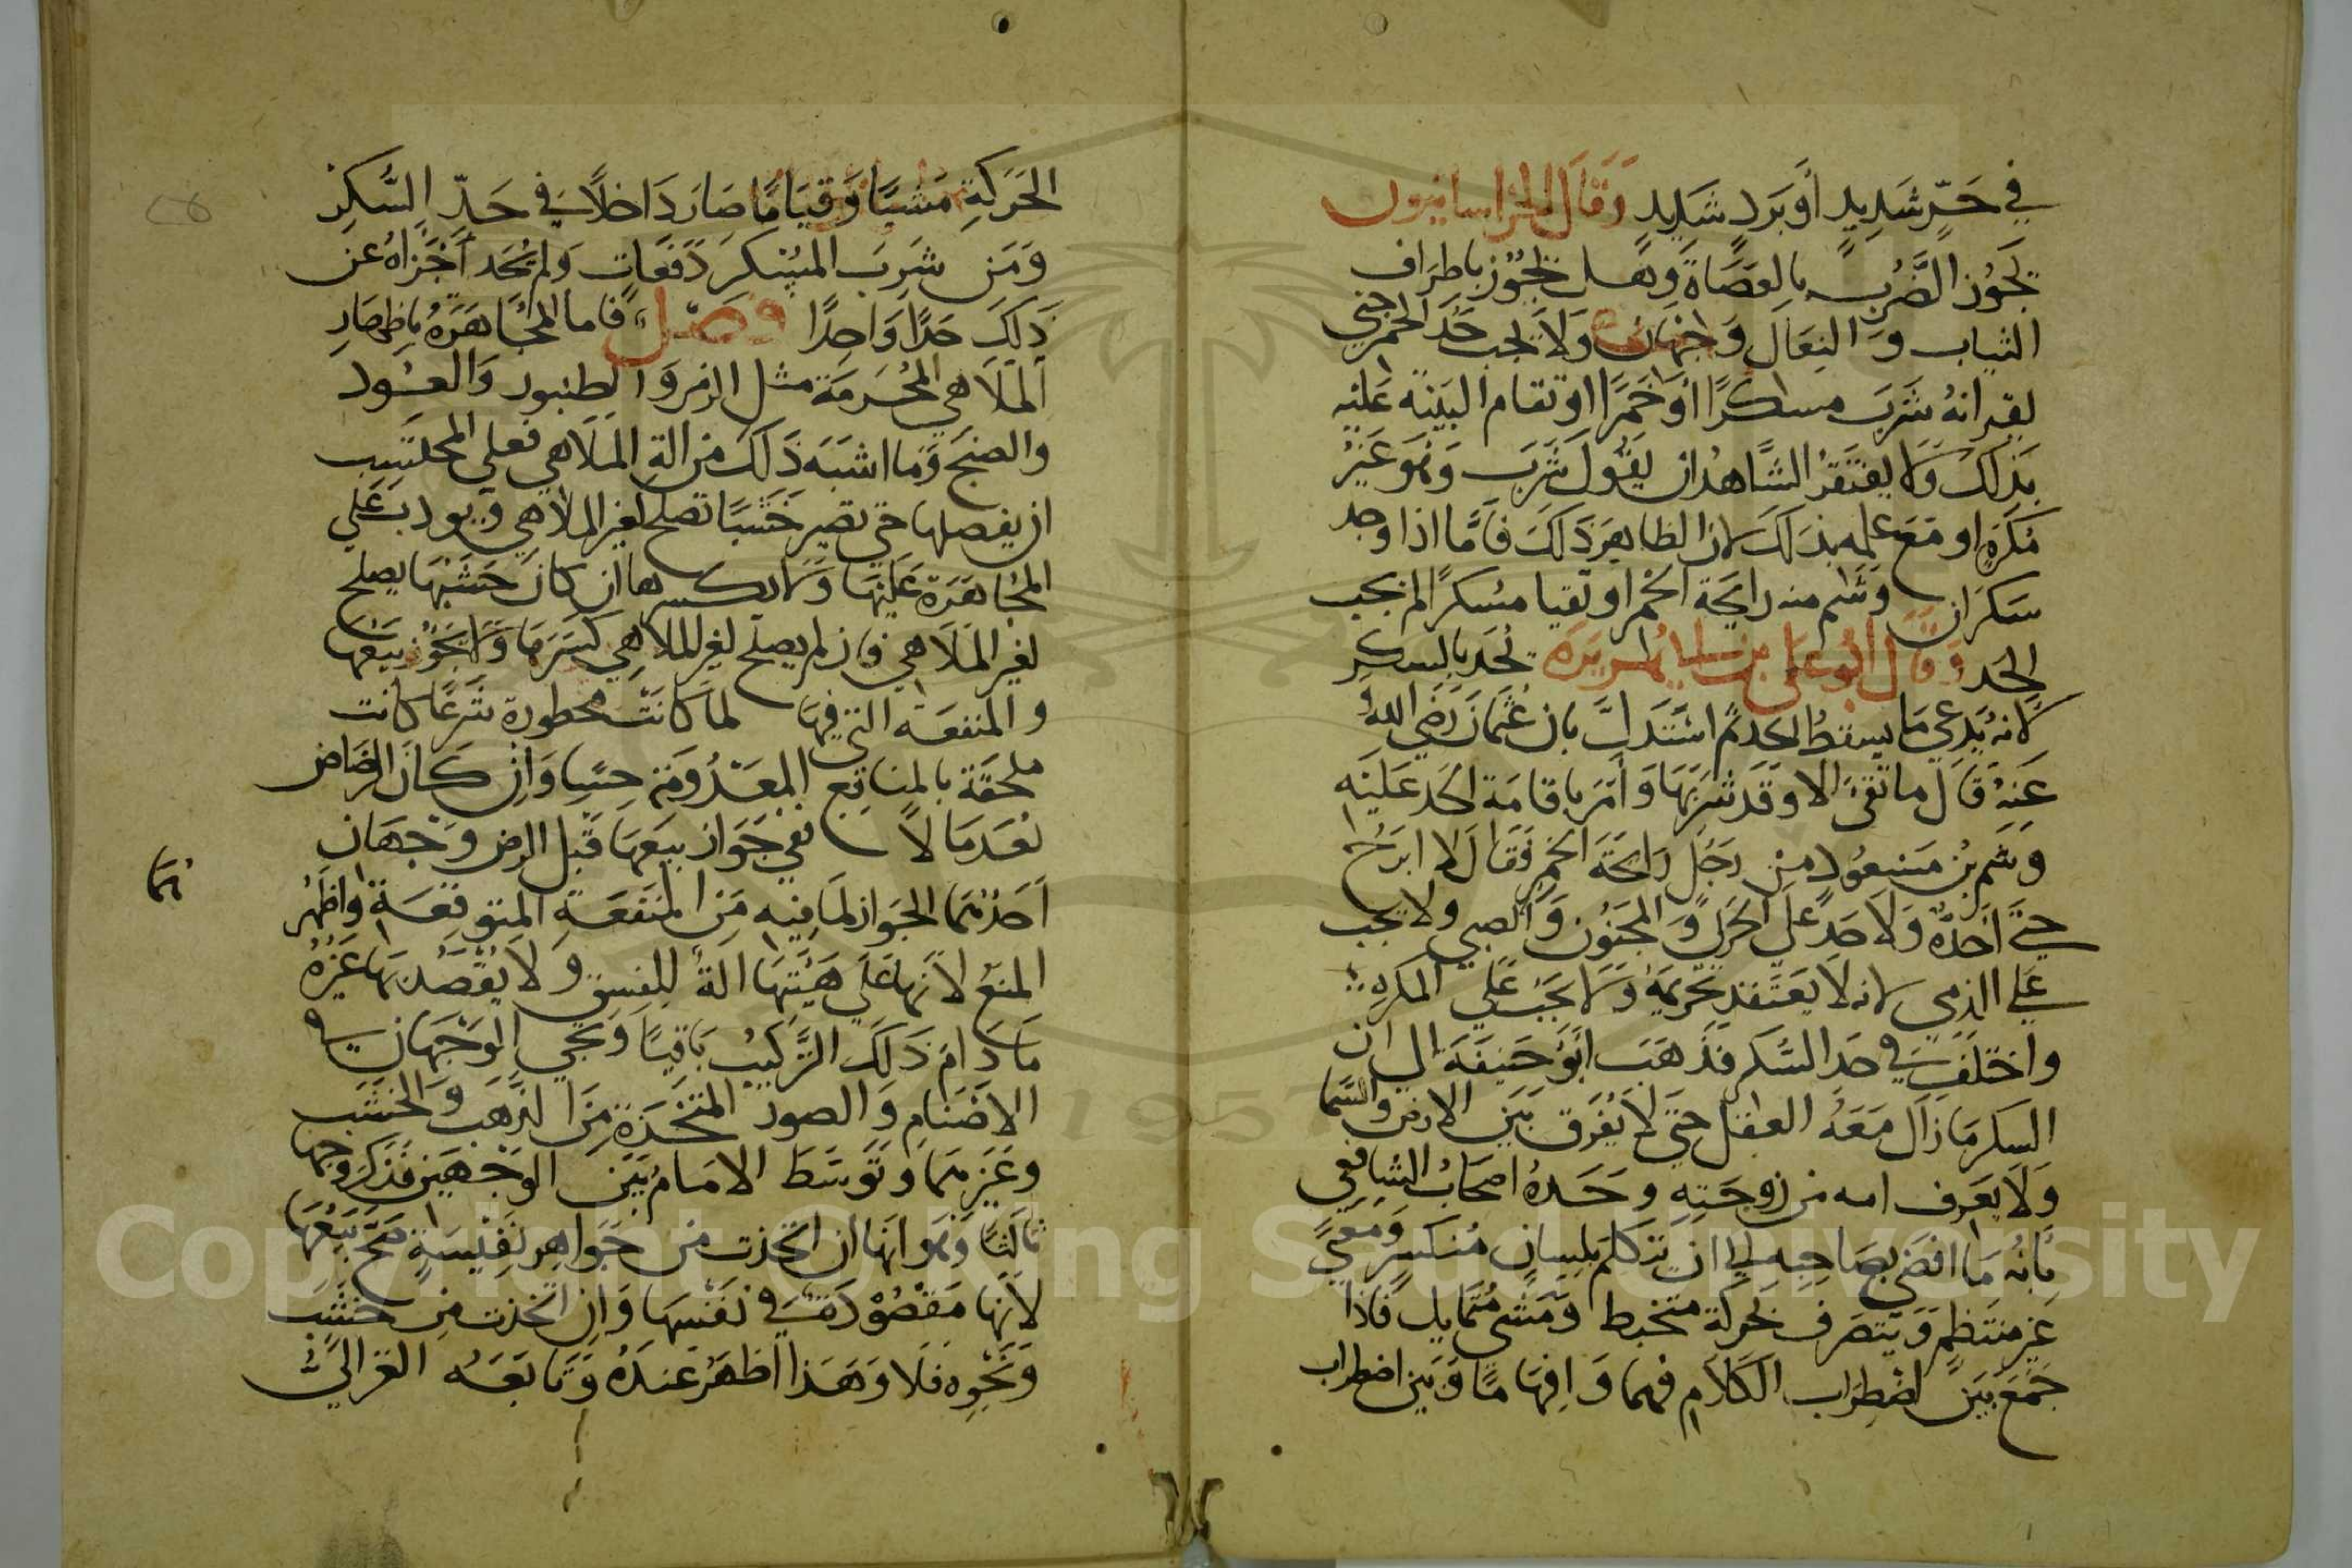 في حر شديد أو برد شديد وقال الخراسانيون
يجوز الضرب بالعصاة وهل يجوز باطراف
الثياب والنعال وجهان ولا يجب حد الخمر حتى
يقر انه شرب مسكرا أو خمرا او تقام البينة عليه
بذلك ولا يفتقر الشاهد ان يقول شرب وهو غير
مكره او مع علمه بذلك لان الظاهر ذلك فأما اذا وجد
سكران وشم منه رايحة الخمر او تقيا مسكرا لم يجب
الحد وقال أبو علي بن أبي هريرة يحد بالسكر
لانه يدعي ما يسقط الحد ثم استدل بان عثمان رضي الله
عنه قال ما تقيأ الا وقد شربها وأمر باقامة الحد عليه
وشم بن مسعود من رجل رايحة الخمر فقال لا ابرح
حتى أحده ولا حد على الحربي والمجنون والصبي ولا يجب
على الذمي لانه لا يعتقد تحريمه ولا يجب على المكره
واختلف في حد السكر فذهب أبو حنيفة الى ان
السكر ما زال معه العقل حتى لا يفرق بين الارض والسما
ولا يعرف امه من زوجته وحده اصحاب الشافعي
بأنه ما افضى بصاحبه الى ان يتكلم بلسان منكسر ومعنى
غير منتظم ويتصرف بحركة متخبط ومشي متمايل فاذا
جمع بين اضطراب الكلام فهما وافهاما وبين اضطراب
الحركة مشيا وقياما صار داخلا في حد السكر
ومن شرب المسكر دفعات ولم يحد أجزاه عن
ذلك حدا واحدا فصل فاما المجاهرة باظهار
الملاهي المحرمة مثل الزمر والطنبور والعود
والصنج وما اشبه ذلك من الة الملاهي فعلى المحتسب
ان يفصلها حتى تصير خشبا تصلح لغير الملاهي ويودب على
المجاهرة عليها ولا يكسرها ان كان خشبها يصلح
لغير الملاهي فان لم يصلح لغير الملاهي كسرها ولا يجوز بيعها
والمنفعة التي فيها لما كانت محظورة شرعا كانت
ملحقة بالمنافع المعدومة حسا وان كان الرضاض
يعد مالا ففي جواز بيعها قبل الرض وجهان
أحدهما الجواز لما فيه من المنفعة المتوقعة واظهر
هما
المنع لأنها على هيئتها الة للفسق ولا يقصد بها غيره
ما دام ذلك التركيب باقيا ويجي الوجهان في
الاصنام والصور المتخذة من الذهب والخشب
وغيرهما وتوسط الامام بين الوجهين فذكر وجها
ثالثا وهو انها ان اتخذت من جواهر نفيسة صح بيعها
لأنها مقصودة في نفسها وان اتخذت من خشب
ونحوه فلا وهذا اظهر عنده وتابعه الغزالي
Copyright © King Saud University
1957